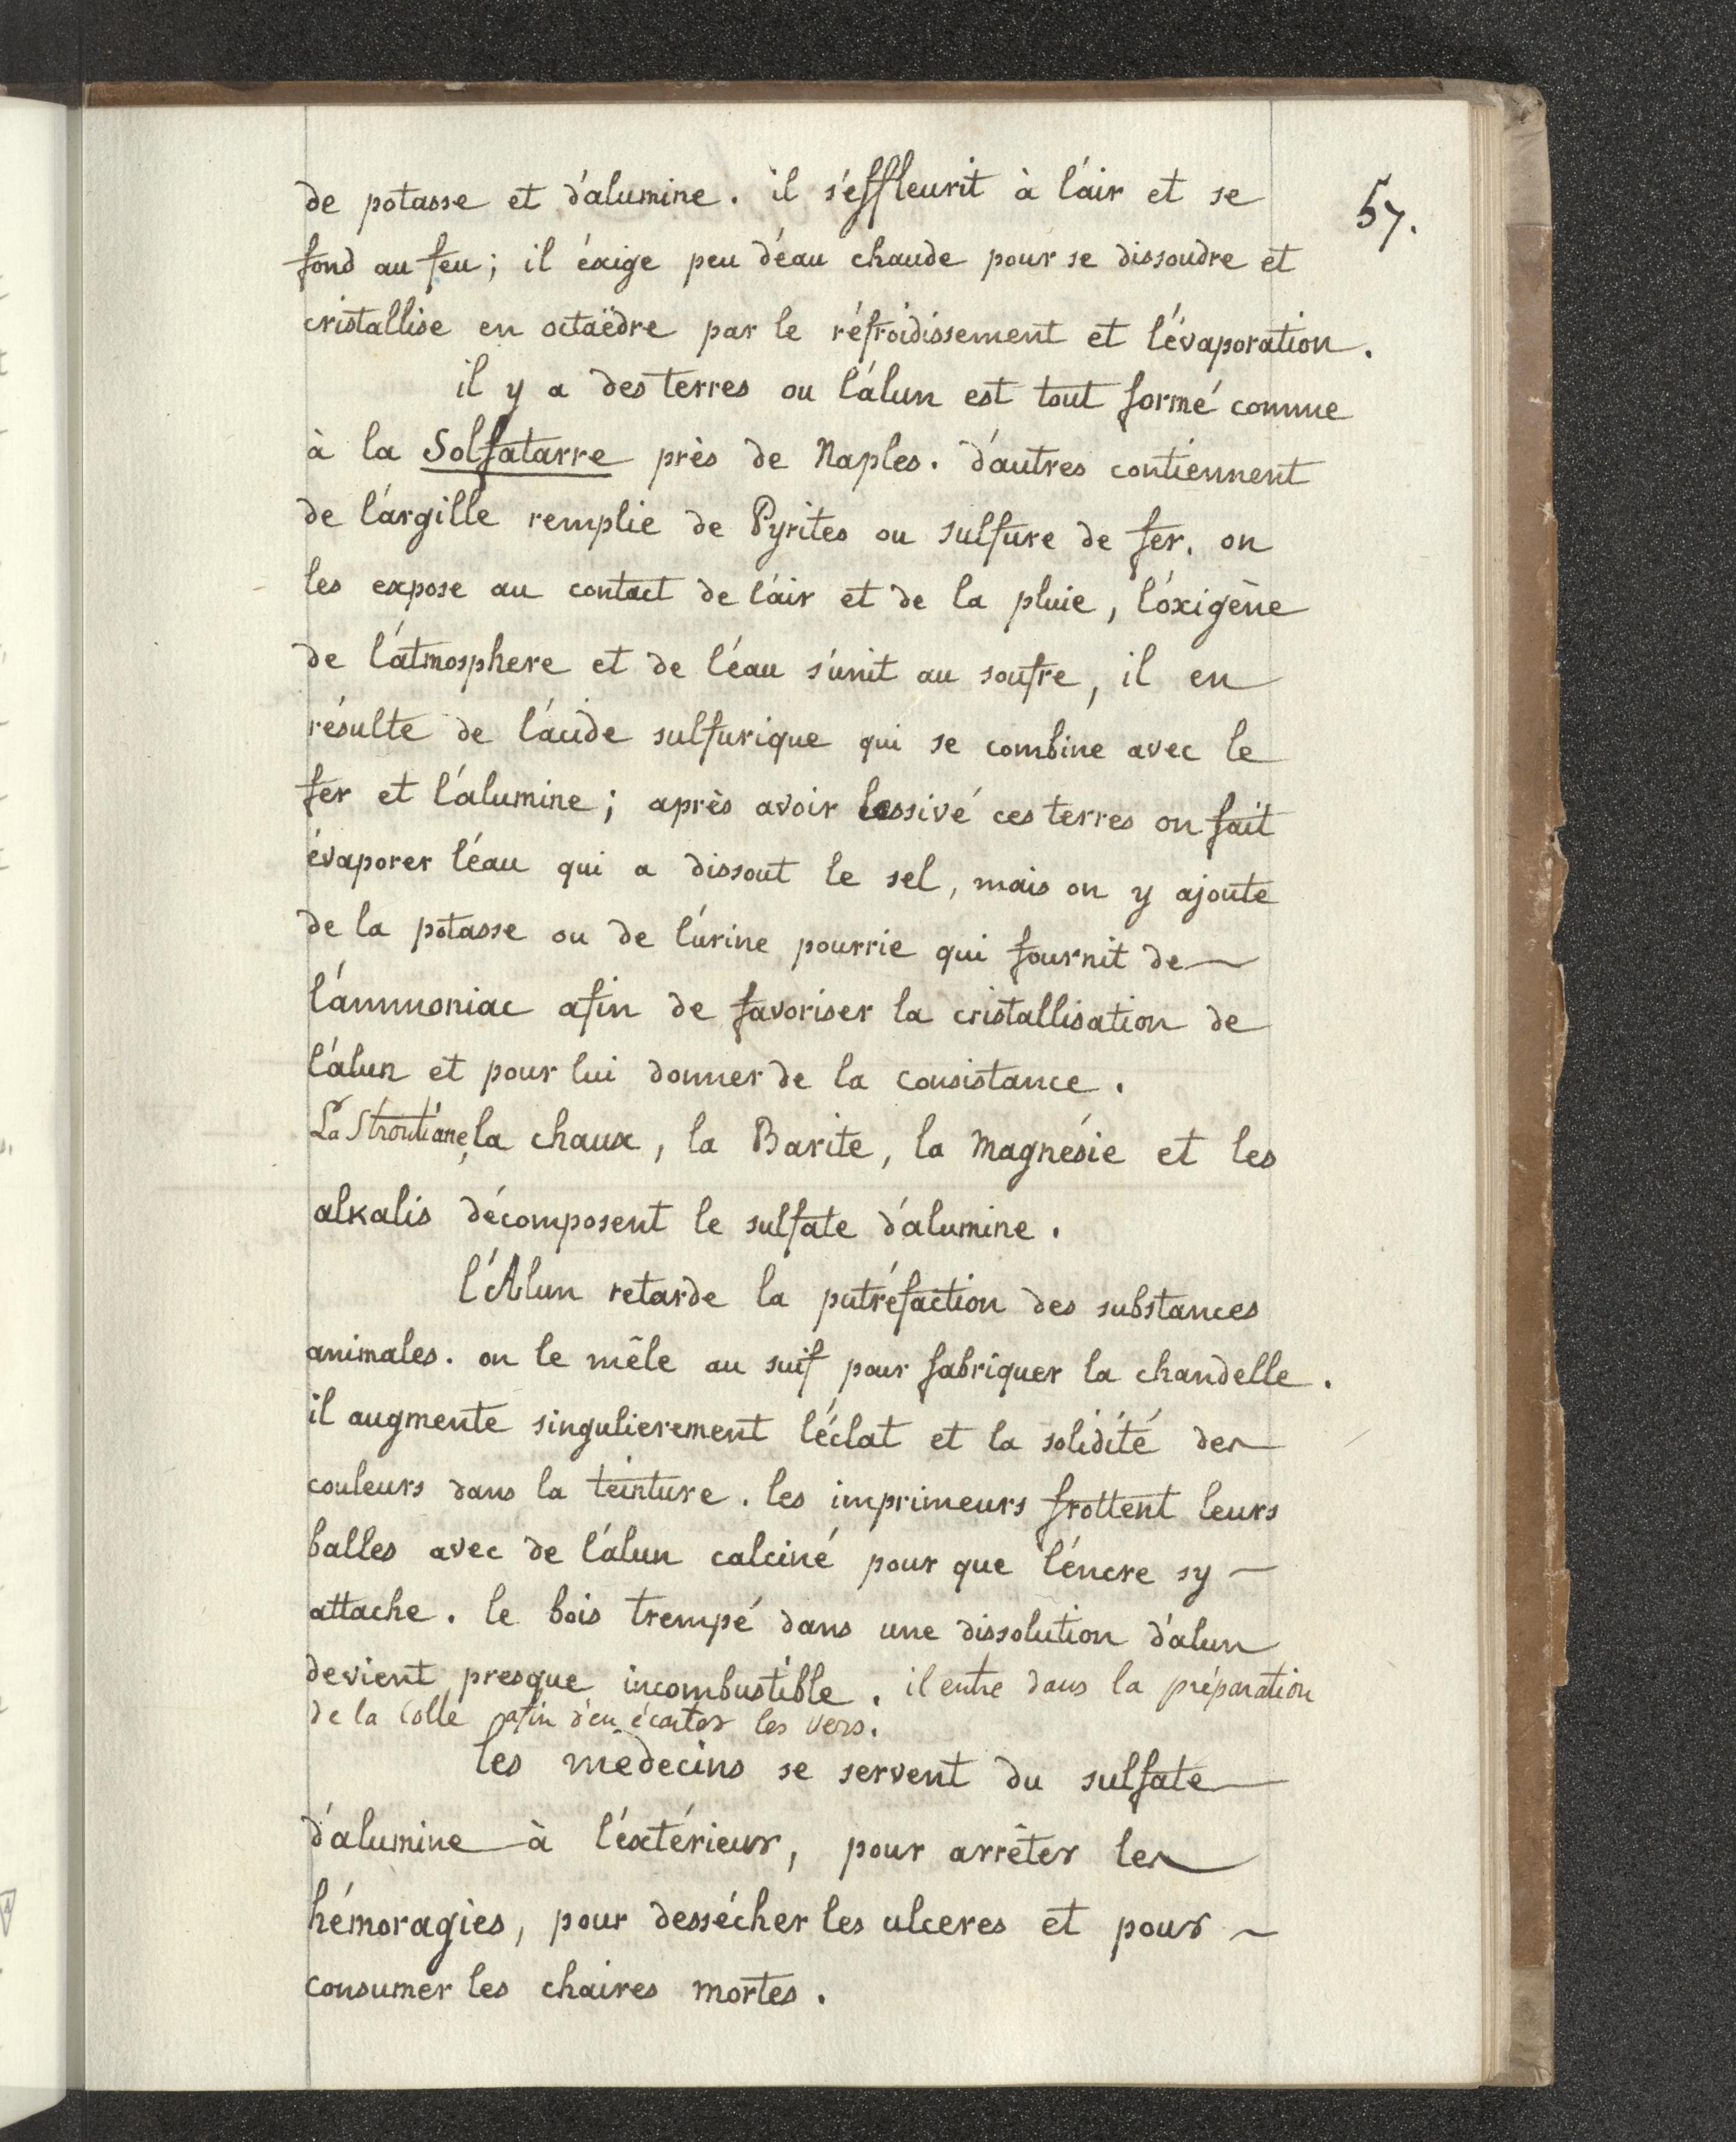 57.
de potasse et d'alumine. il s'effleurit à l'air et se
fond au feu; il éxige peu d'éau chaude pour se dissoudre et
cristallise en octaëdre par le réfroidissement et l'évaporation.
il y a des terres ou l'alun est tout formé comme
à la Solfatarre près de Naples. d'autres contiennent
de l'argille remplie de Pyrites ou sulfure de fer. on
les expose au contact de l'air et de la pluie, l'oxigène
de l'atmosphere et de l'éau s'unit au soufre, il en
résulte de l'acide sulfurique qui se combine avec le
fer et l'alumine; après avoir lessivé ces terres on fait
évaporer l'éau qui a dissout le sel, mais on y ajoute
de la potasse ou de l'urine pourrie qui fournit de
l'ammoniac afin de favoriser la cristallisation de
l'alun et pour lui donner de la consistance.
La Strontiane, la chaux, la Barite, la Magnésie et les
alkalis décomposent le sulfate d'alumine.
l'Alun retarde la putréfaction des substances
animales. on le mêle au suif pour fabriquer la chandelle.
il augmente singulierement l'éclat et la solidité des
couleurs dans la teinture. les imprimeurs frottent leurs
balles avec de l'alun calciné pour que l'encre sy
attache. le bois trempé dans une dissolution d'alun
devient presque incombustible. il entre dans la préparation
de la Colle afin d'en écarter les vers.
les médecins se servent du sulfate
d'alumine à l'éxtérieur, pour arrêter les
hémoragies, pour dessécher les ulceres et pour
consumer les chaires mortes.